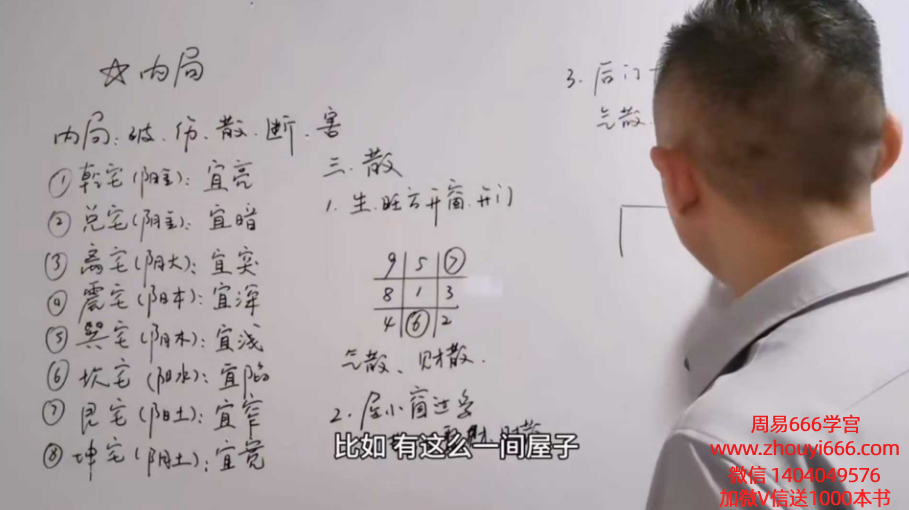 ☆内局
内局:破.伤.散.断.害
①乾宅(阳金):宜亮
②兑宅(阴金):宜暗
③离宅(阴火):宜实
④震宅(阳木):宜深
⑤巽宅(阴木):宜浅
⑥坎宅(阳水):宜陷
⑦艮宅(阳土):宜窄
⑧坤宅(阴土):宜宽
三.散
1.生.旺方开窗.开门
9 5 ⑦
8 1 3
4 ⑥ 2
气散、财散.
2.屋小窗过多
3.后门
气散.
比如 有这么一间屋子
周易666学宫
www.zhouyi666.com
微信 1404049576
加微V信送1000本书